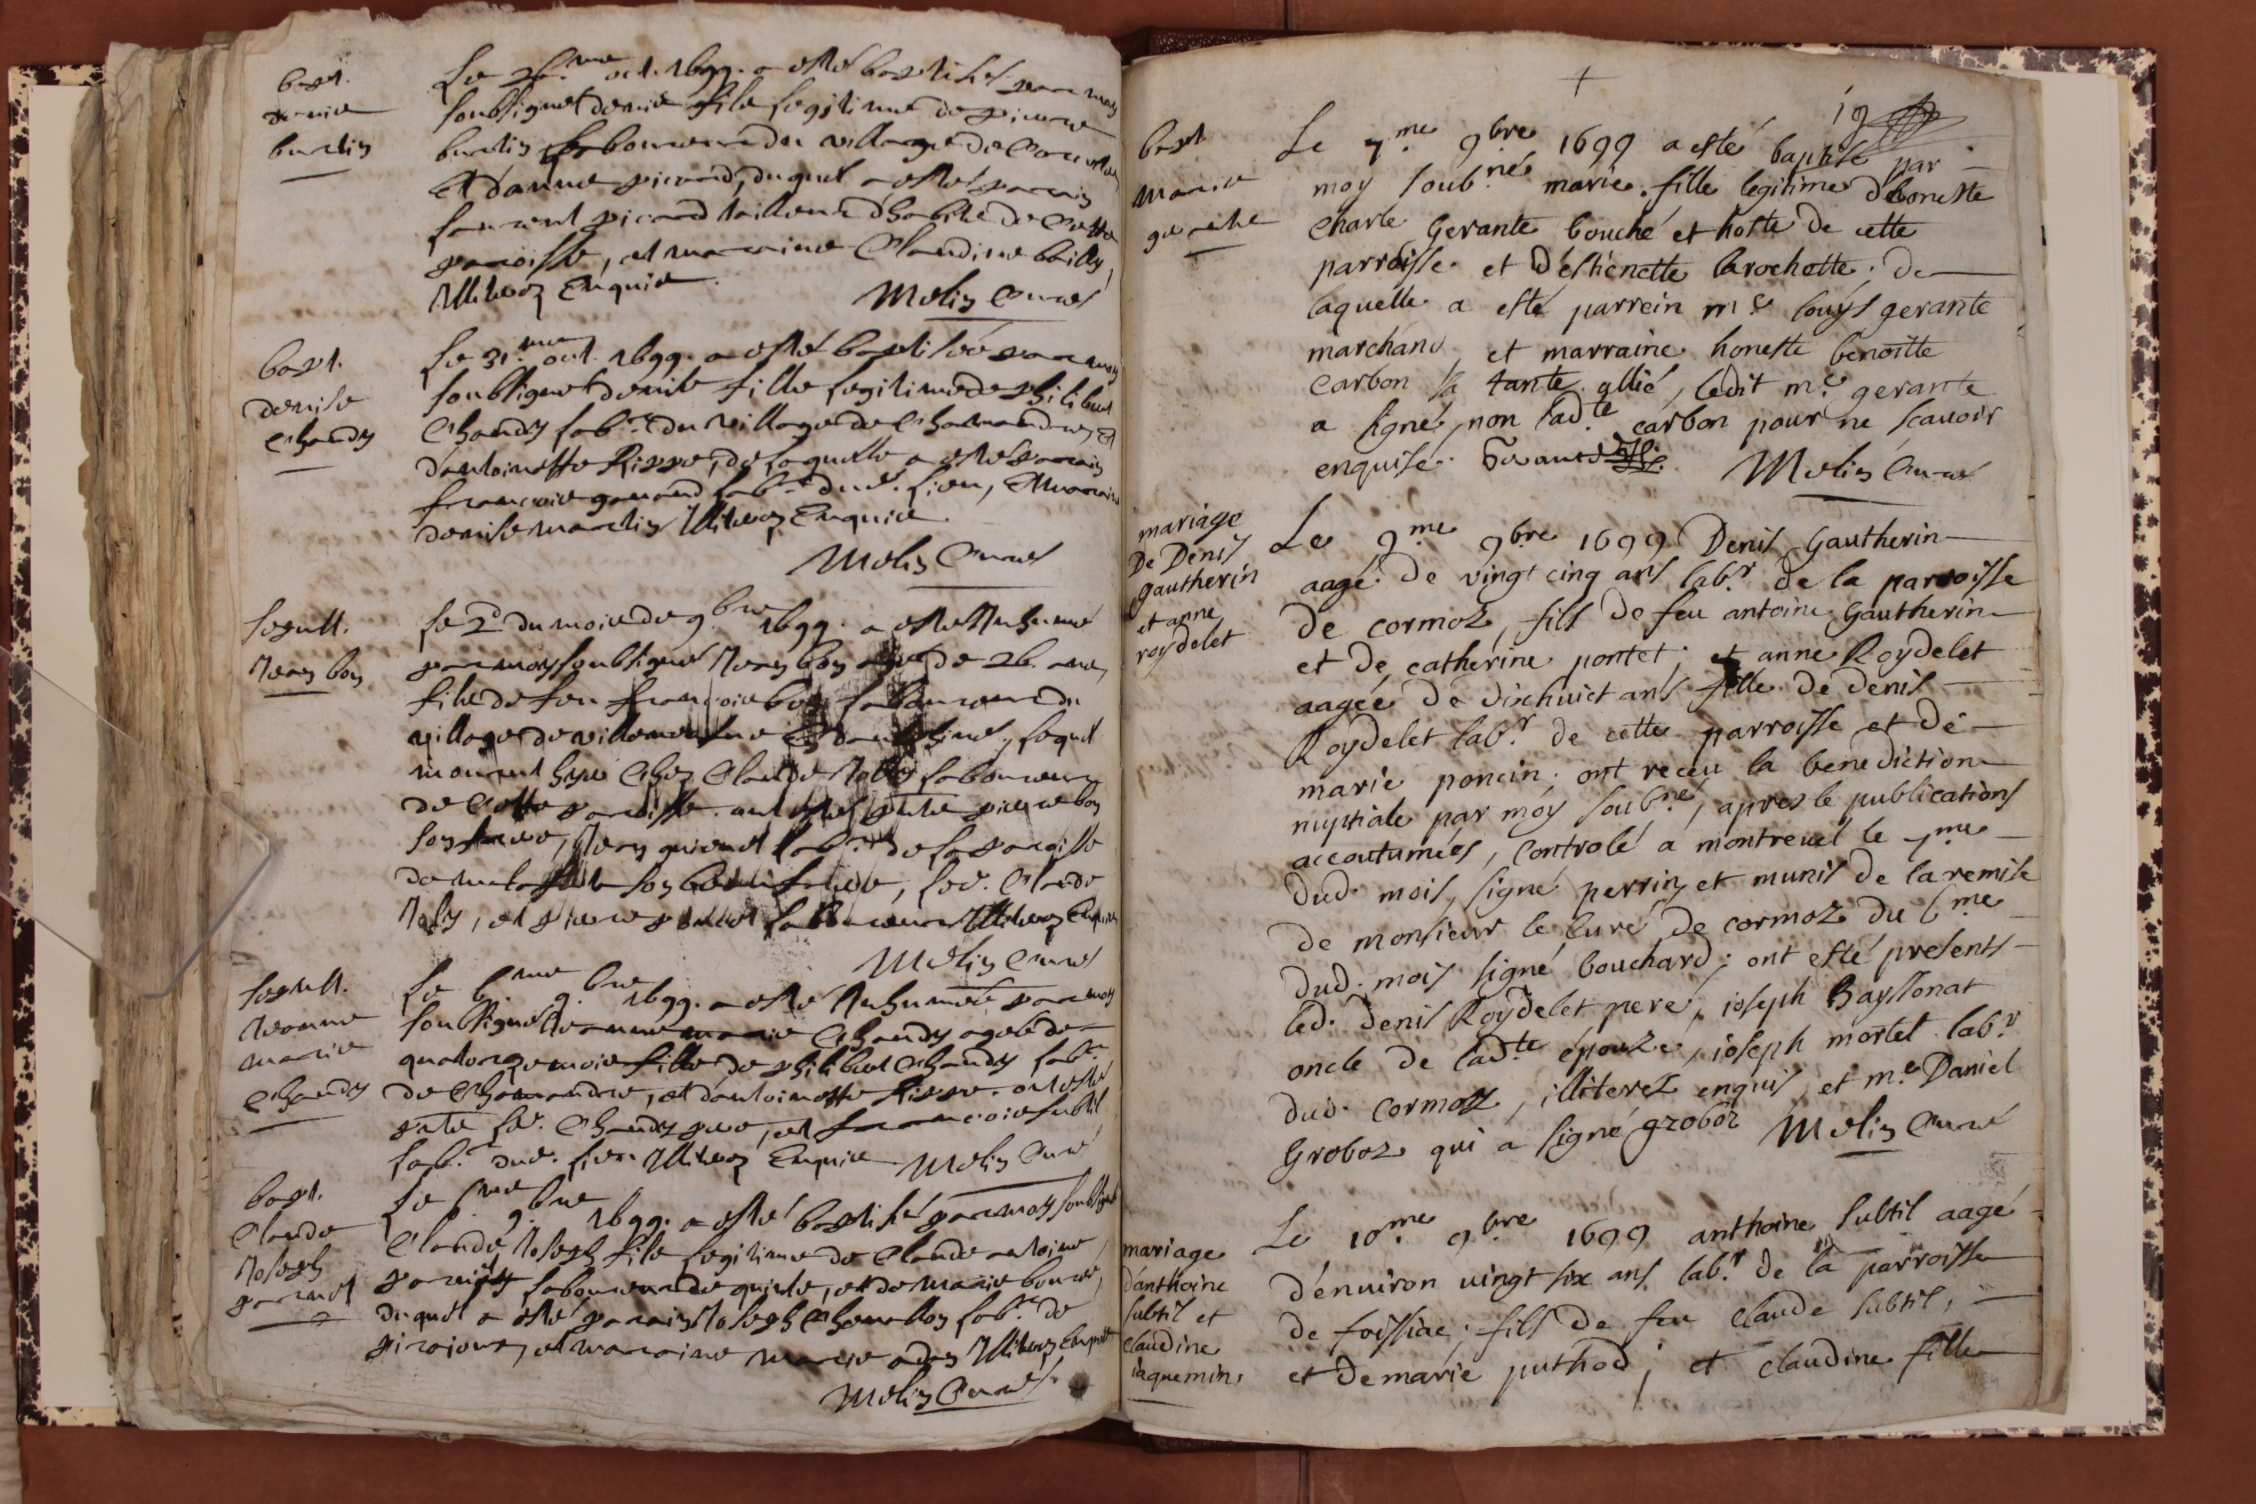 bapt.
denis
burtin
Le 26.me oct. 1699. a esté baptisé par moy
soubsigné denis fils legitime de pierre
burtin laboureur du village de
et d'anne picard, duquel a esté parrain
laurent picard tailleur d'habits de cette
parroisse, et marraine Claudine bailly,
Illiterez Enquis.
Melin Curé
bapt.
denise
Chandy
Le 31.me oct. 1699. a esté baptisée par moy
soubsigné denise fille legitime de philibert
Chandy lab.r du village de Chamandrey et
d'antoinette Rippe, de laquelle a esté parrain
francois gauand lab.r dud. lieu, et marraine
denise martin Illiterez Enquis.
Melin Curé
sepult.
Jean bon
Le 2.e du mois de 9.bre 1699. a esté Inhumé
par moy soubsigné Jean bon agé de 26. ans,
fils de feu francois bon laboureur du
village de et , lequel
mourut hyer Chez Claude Joly laboureur
de Cette parroisse. ont estés pnts pierre bon
son frere, Jean lab.r de la parroisse
de son beaufrere, led. Claude
Joly, et pierre laboureur Illiterez Enquis
Melin Curé
sepult.
Jeanne
marie
Chandy
Le 6.me 9.bre 1699. a esté Inhumée par moy
soubsigné Jeanne marie Chandy agée de
quatorze mois fille de philibert Chandy lab.r
de Chamandre, et d'antoinette Rippe. ont estés
pnts led. Chandy pere, et francois subtil
lab.r dud. lieu Illiterez Enquis Melin Curé
bapt.
Claude
Joseph
parnet
Le 6.me 9.bre 1699. a esté baptisé par moy soubsigné
Claude Joseph fils legitime de Claude antoine
laboureur de , et de marie
duquel a esté parrain Joseph Chevallon lab.r de
, et marraine marie Illiterez Enquis
Melin Curé.
19
bapt
marie
gerante
Le 7.me 9bre 1699 a esté baptisé par
moy soub.né marie fille legitime d'honeste
Charle Gerante bouché et hoste de cette
parroisse et d'estienette larochette; de
laquelle a esté parrein m.e louys gerante
marchand, et marraine honeste benoitte
Carbon sa tante allié, ledit m.e gerante
a signé, non lad.te carbon pour ne scavoir
enquise. Gerante Melin Curé
mariage
De Denis
gautherin
et anne
roydelet
Le 9me 9bre 1699 Denis Gautherin
aagé de vingt cinq ans lab.r de la parroisse
de cormoz, fils de feu antoine Gautherin
et de catherine pontet; et anne Roydelet
aagée de dixhuict ans fille de denis
Roydelet lab.r de cette parroisse et de
marie poncin; ont receu la benediction
nuptiale par moy soub.né, apres le publications
accoutumées, controlé a montreuel le 7me
dud. mois, signé perrin, et munis de la remise
de monsieur le Curé de cormoz du 6me
dud. mois signé bouchard; ont esté presents
led. denis Roydelet pere, ioseph Bayssonat
oncle de lad.te épouze, ioseph morlet lab.r
dud. Cormoz, illiterez enquis, et m.e Daniel
Groboz qui a signé groboz Melin Curé
mariage
d'anthoine
subtil et
claudine
iaquemin
Le 10.me 9bre 1699 anthoine subtil aagé
d'enuiron uingt six ans lab.r de la parroisse
de foissiac; fils de feu claude subtil,
et de marie puthod; et claudine fille